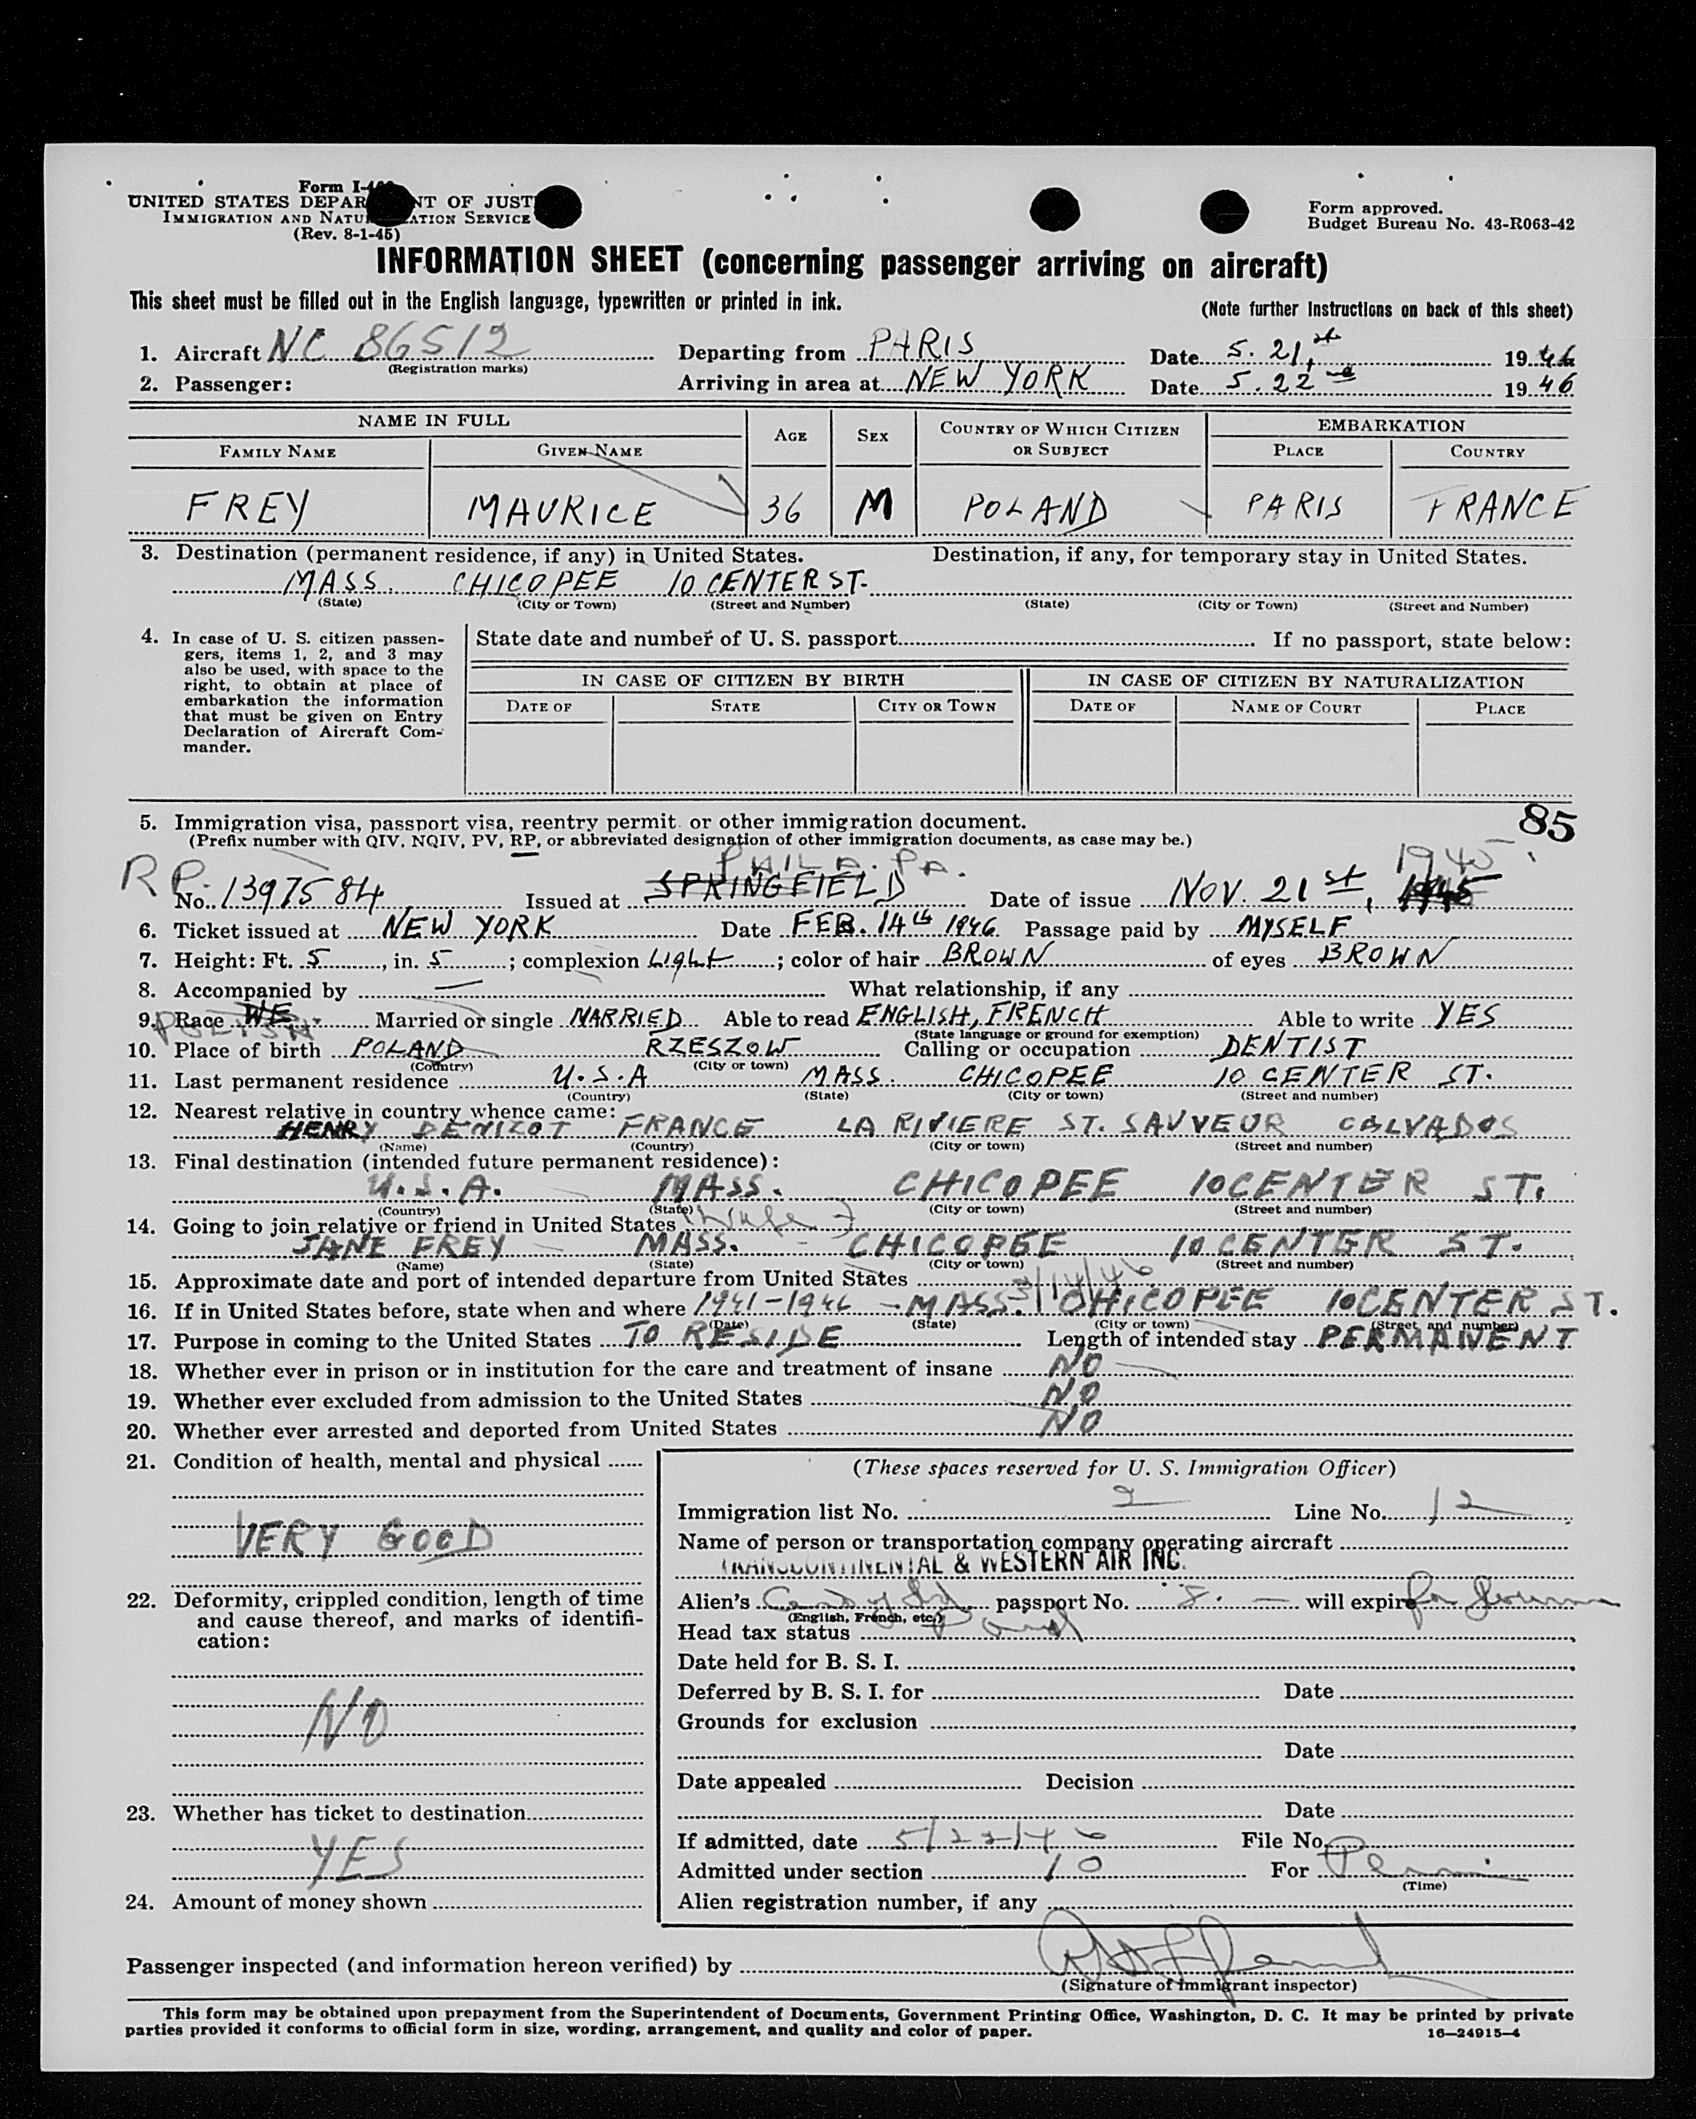 Form I-
UNITED STATES DEPAR NT OF JUST
IMMIGRATION AND NATU ATION SERVICE
(Rev. 8-1-45)
Form approved.
Budget Bureau No. 43-R063-42
INFORMATION SHEET (concerning passenger arriving on aircraft)
This sheet must be filled out in the English language, typewritten or printed in ink.
(Note further instructions on back of this sheet)
1. Aircraft NC 86512 Departing from PARIS Date 5. 21,st 1946
(Registration marks)
2. Passenger: Arriving in area at NEW YORK Date 5.22nd 1946
NAME IN FULL AGE SEX COUNTRY OF WHICH CITIZEN OR SUBJECT EMBARKATION
FAMILY NAME GIVEN NAME PLACE COUNTRY
FREY MAURICE 36 M POLAND PARIS FRANCE
3. Destination (permanent residence, if any) in United States. Destination, if any, for temporary stay in United States.
MASS. CHICOPEE 10 CENTER ST.
(State) (City or Town) (Street and Number) (State) (City or Town) (Street and Number)
4. In case of U. S. citizen passen-
gers, items 1, 2, and 3 may
also be used, with space to the
right, to obtain at place of
embarkation the information
that must be given on Entry
Declaration of Aircraft Com-
mander.
State date and number of U. S. passport If no passport, state below:
IN CASE OF CITIZEN BY BIRTH IN CASE OF CITIZEN BY NATURALIZATION
DATE OF STATE CITY OR TOWN DATE OF NAME OF COURT PLACE
85
5. Immigration visa, passport visa, reentry permit or other immigration document.
(Prefix number with QIV, NQIV, PV, RP, or abbreviated designation of other immigration documents, as case may be.)
PHILA. PA. 1945
RP. No. 1397584 Issued at SPRINGFIELD Date of issue NOV. 21st, 1945
6. Ticket issued at NEW YORK Date FEB. 14th 1946 Passage paid by MYSELF
7. Height: Ft. 5, in. 5; complexion Light; color of hair BROWN of eyes BROWN
8. Accompanied by — What relationship, if any
9. Race WE Married or single MARRIED Able to read ENGLISH, FRENCH Able to write YES
POLISH
(State language or ground for exemption)
10. Place of birth POLAND RZESZOW Calling or occupation DENTIST
(Country) (City or town)
11. Last permanent residence U.S.A MASS. CHICOPEE 10 CENTER ST.
(Country) (State) (City or town) (Street and number)
12. Nearest relative in country whence came:
HENRY DENIZOT FRANCE LA RIVIERE ST. SAUVEUR CALVADOS
(Name) (Country) (City or town) (Street and number)
13. Final destination (intended future permanent residence):
U.S.A. MASS. CHICOPEE 10 CENTER ST.
(Country) (State) (City or town) (Street and number)
14. Going to join relative or friend in United States Wife
JANE FREY MASS. CHICOPEE 10 CENTER ST.
(Name) (State) (City or town) (Street and number)
15. Approximate date and port of intended departure from United States 3/14/46
16. If in United States before, state when and where 1941-1946 - MASS. CHICOPEE 10 CENTER ST.
(Date) (State) (City or town) (Street and number)
17. Purpose in coming to the United States TO RESIDE Length of intended stay PERMANENT
18. Whether ever in prison or in institution for the care and treatment of insane NO
19. Whether ever excluded from admission to the United States NO
20. Whether ever arrested and deported from United States NO
21. Condition of health, mental and physical
VERY GOOD
22. Deformity, crippled condition, length of time
and cause thereof, and marks of identifi-
cation:
NO
23. Whether has ticket to destination
YES
24. Amount of money shown
(These spaces reserved for U. S. Immigration Officer)
Immigration list No. 2 Line No. 12
Name of person or transportation company operating aircraft
TRANSCONTINENTAL & WESTERN AIR INC.
Alien's passport No. will expire
(English, French, etc.)
Head tax status
Date held for B. S. I.
Deferred by B. S. I. for Date
Grounds for exclusion
Date
Date appealed Decision
Date
If admitted, date 5/22/46 File No.
Admitted under section 10 For Perm
(Time)
Alien registration number, if any
Passenger inspected (and information hereon verified) by
(Signature of Immigrant inspector)
This form may be obtained upon prepayment from the Superintendent of Documents, Government Printing Office, Washington, D. C. It may be printed by private
parties provided it conforms to official form in size, wording, arrangement, and quality and color of paper.
16—24915-4